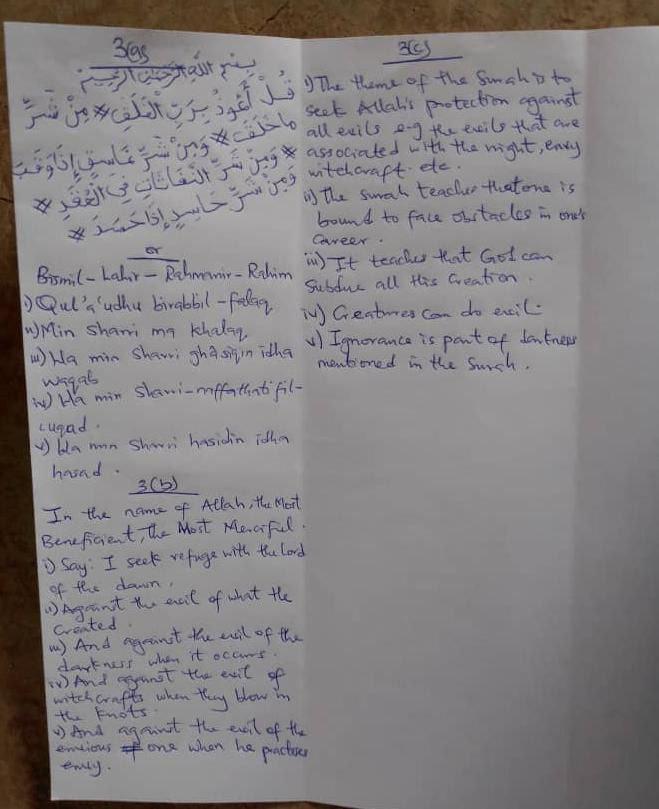 3(a)
بِسْمِ اللّٰهِ الرَّحْمٰنِ الرَّحِيْمِ
قُلْ أَعُوْذُ بِرَبِّ الْفَلَقِ * مِنْ شَرِّ
مَا خَلَقَ * وَمِنْ شَرِّ غَاسِقٍ إِذَا وَقَبَ
* وَمِنْ شَرِّ النَّفَّاثَاتِ فِي الْعُقَدِ *
وَمِنْ شَرِّ حَاسِدٍ إِذَا حَسَدَ *
or
Bismil-Lahir-Rahmanir-Rahim
i) Qul'a'udhu birabbil-falaq
ii) Min sharri ma khalaq
iii) Wa min sharri ghasiqin idha
waqab
iv) Wa min sharri-naffathati fil-
cuqad.
v) Wa min sharri hasidin idha
hasad.
3(b)
In the name of Allah, the Most
Beneficient, the Most Merciful.
i) Say: I seek refuge with the Lord
of the dawn.
ii) Against the evil of what He
created.
iii) And against the evil of the
darkness when it occurs.
iv) And against the evil of
witchcrafts when they blow in
the knots.
v) And against the evil of the
envious one when he practises
envy.
3(c)
i) The theme of the Surah is to
seek Allah's protection against
all evils e.g the evils that are
associated with the night, envy
witchcraft. etc.
ii) The surah teaches that one is
bound to face obstacles in one's
career.
iii) It teaches that God can
subdue all His Creation.
iv) Creatures can do evil.
v) Ignorance is part of darkness
mentioned in the Surah.